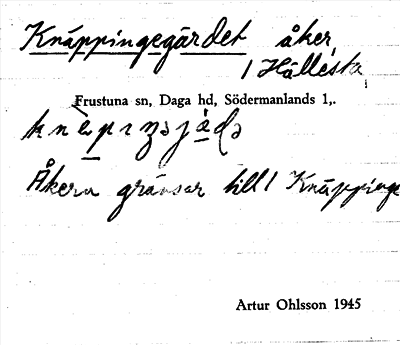 Knäppingegärdet åker
i Hållesta
Frustuna sn, Daga hd, Södermanlands l,.
Åkern gränsar till Knäppinge
Artur Ohlsson 1945